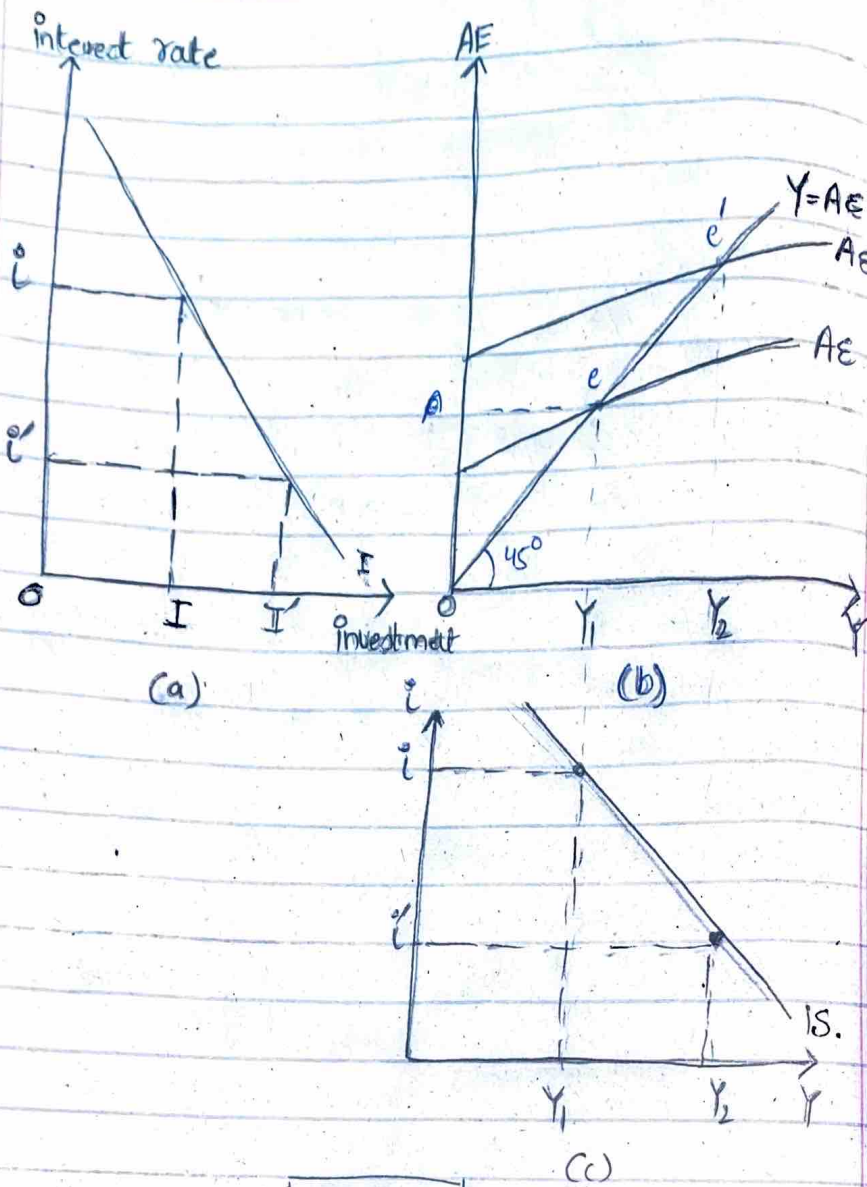 interest rate
i
i'
O
I
I'
I
investment
(a)
AE
Y=AE
e'
AE
AE
e
45°
O
Y1
Y2
Y
(b)
i
i
i'
IS.
Y1
Y2
Y
(c)